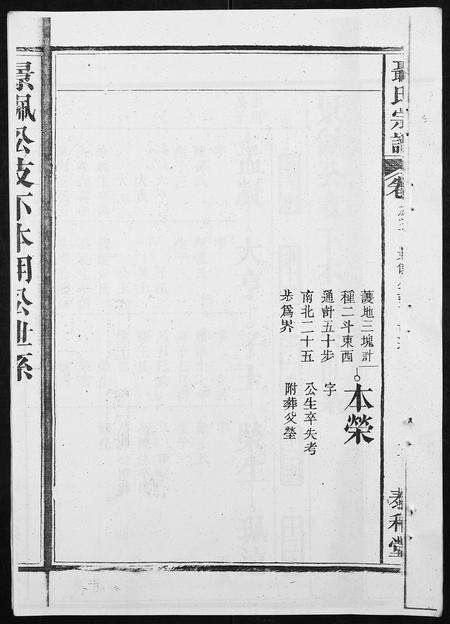 聶氏宗譜
卷
泰和堂
護地三塊計
種二斗東西
通計五十步
南北二十五
步為界
本榮
字
公生卒失考
附葬父塋
景佩公支下本用公世系